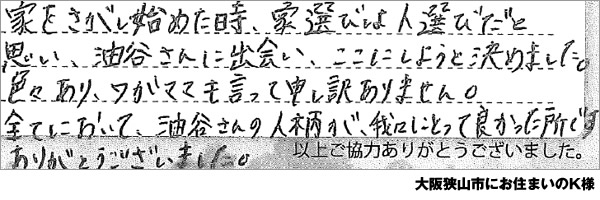 家をさがし始めた時、家選びは人選びだと
思い、油谷さんに出会い、ここにしようと決めました。
色々あり、ワガママを言って申し訳ありません。
全てにおいて、油谷さんの人柄が、我々にとって良かった所です
ありがとうございました。
以上ご協力ありがとうございました。
大阪狭山市にお住まいのK様